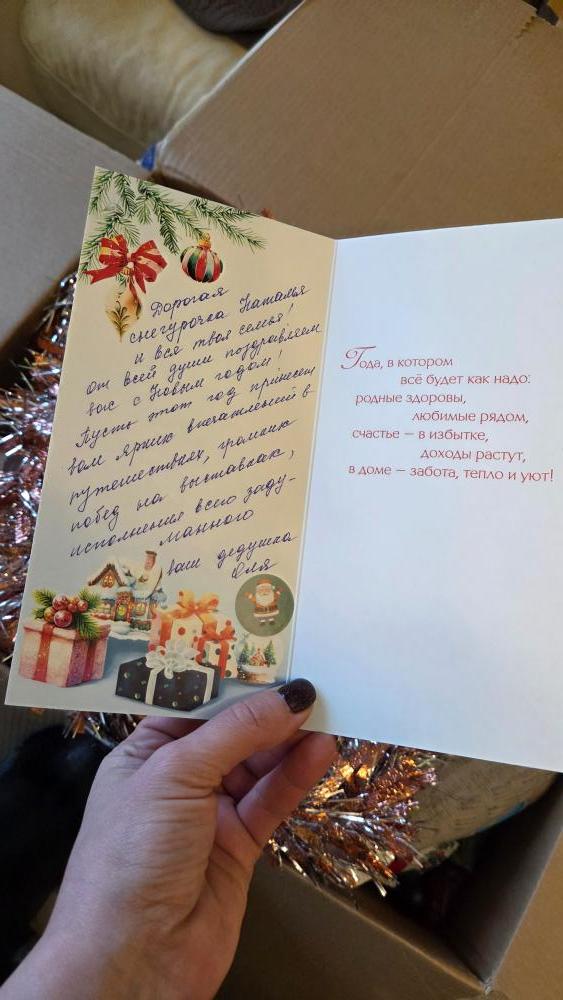 Дорогая
снегурочка Наталья
и вся твоя семья!
от всей души поздравляем
вас с Новым годом!
Пусть этот год принесет
вам ярких впечатлений в
путешествиях, громких
побед на выставках,
исполнения всего заду-
манного
ваш дедушка
Оля
Года, в котором
всё будет как надо:
родные здоровы,
любимые рядом,
счастье – в избытке,
доходы растут,
в доме – забота, тепло и уют!